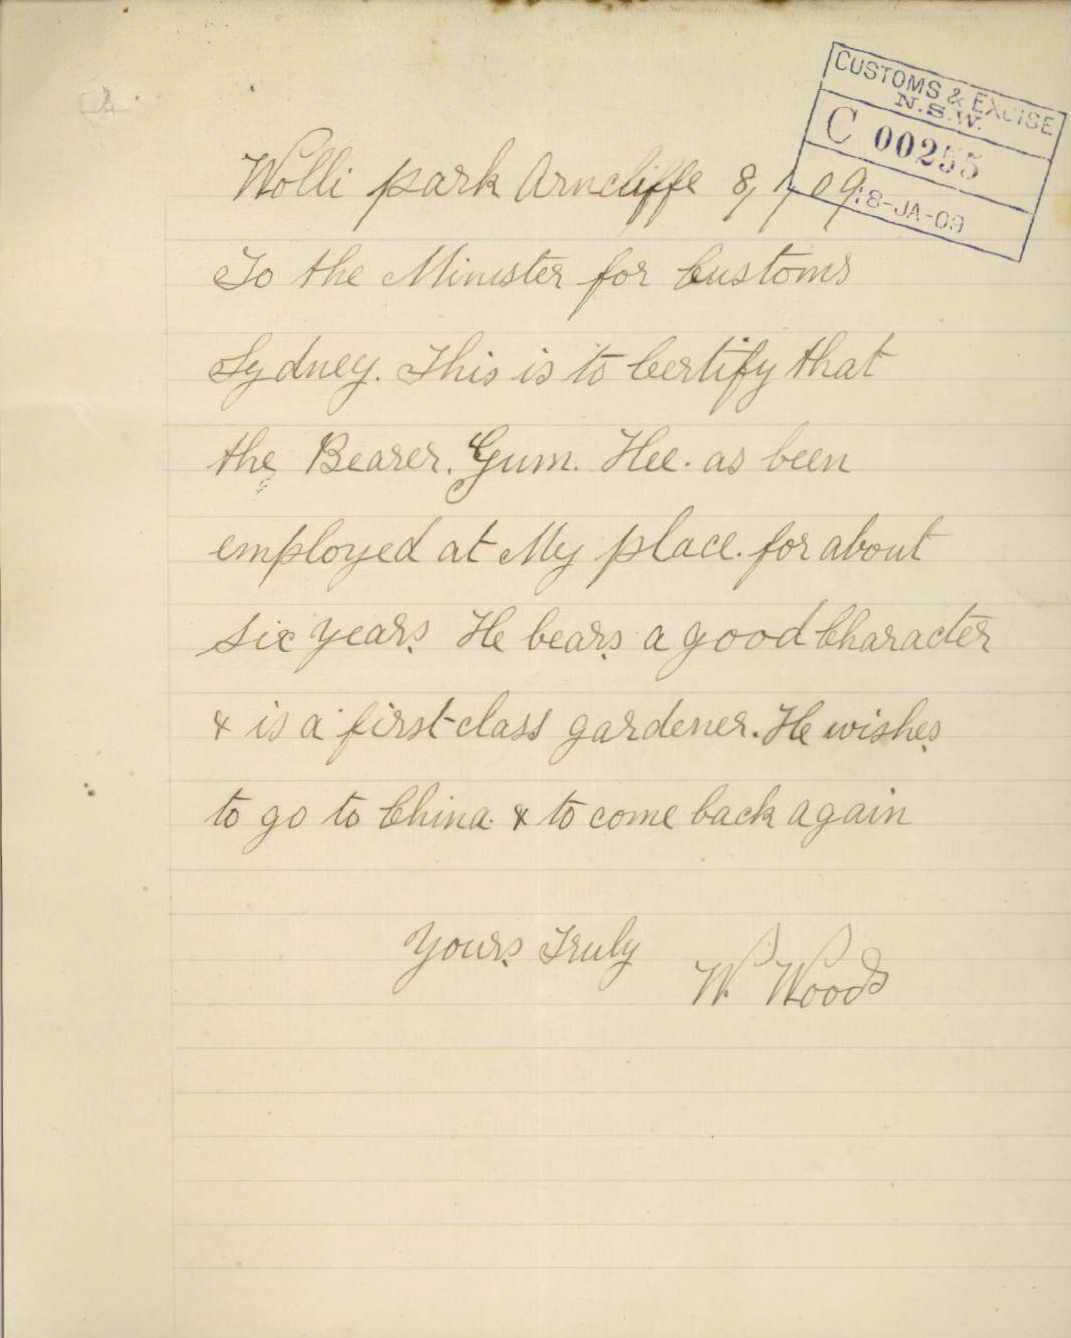 CUSTOMS & EXCISE
N.S.W.
C 00255
18-JA-09
Wolli park Arncliffe 8/1/09
To the Minister for Customs
Sydney. This is to Certify that
the Bearer. Gum. Hee. as been
employed at My place. for about
six years. He bears a good Character
& is a first-class gardener. He wishes
to go to China. & to come back again
Yours Truly
W. Woods